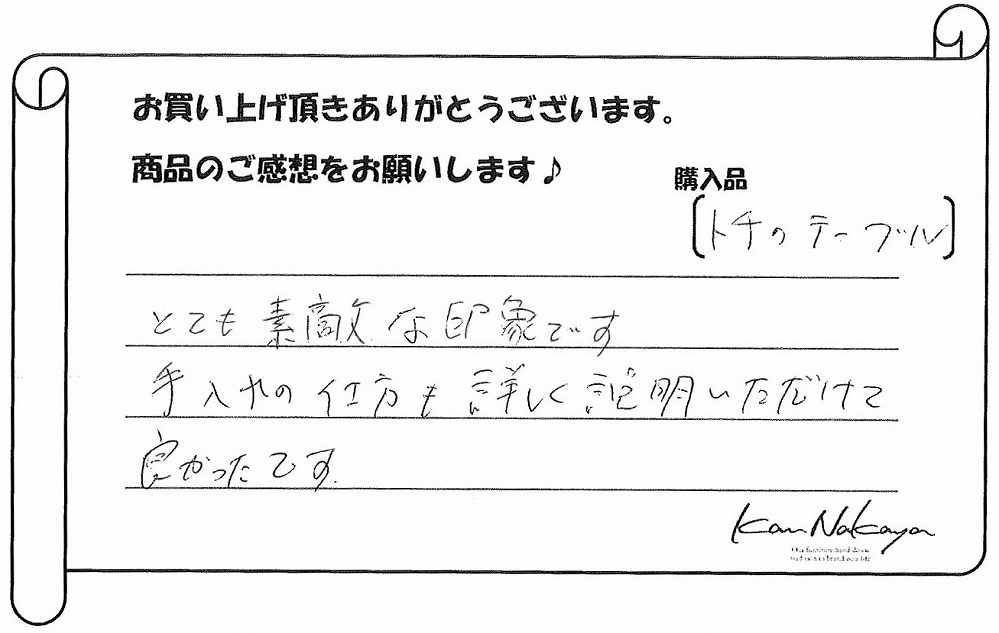 お買い上げ頂きありがとうございます。
商品のご感想をお願いします♪
購入品
[トチのテーブル]
とても素敵な印象です
手入れの仕方も詳しく説明いただけて
良かったです.
Kan Nakaya